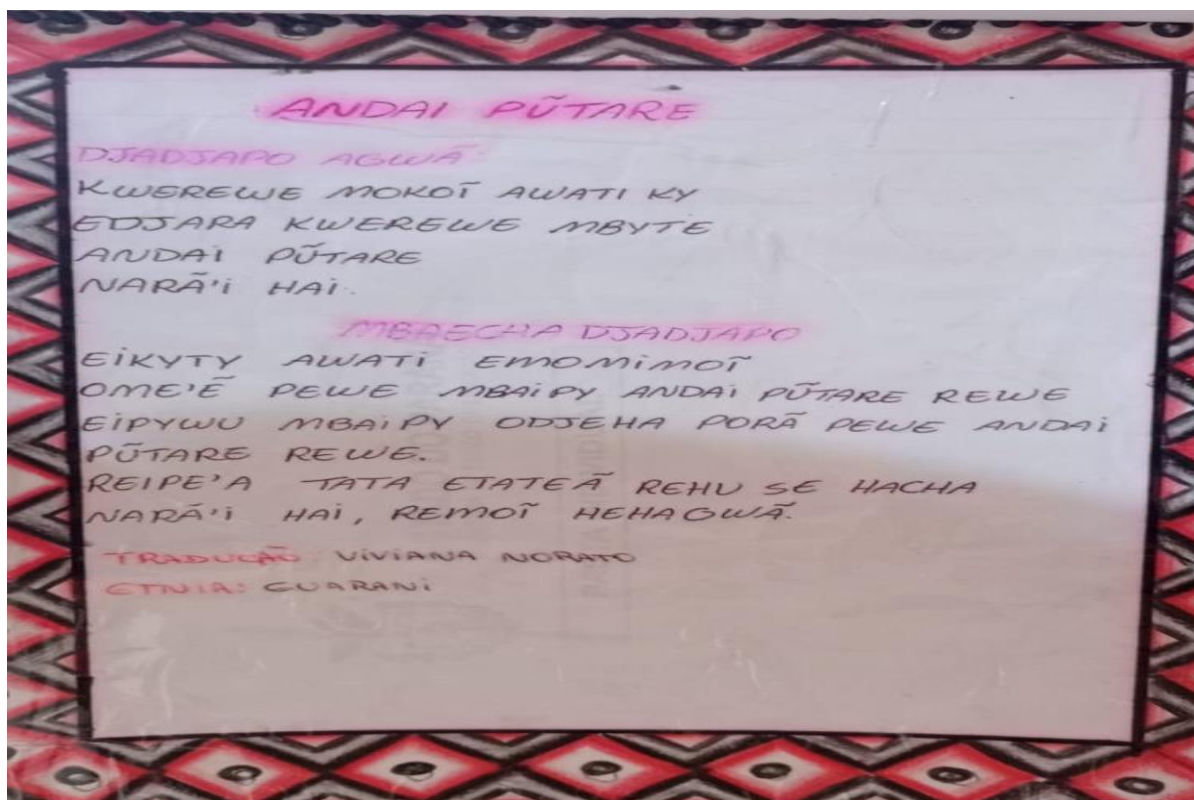 ANDAI PŨTARE
DJADJAPO AGWÃ:
KWEREWE MOKOĨ AWATI KY
EDJARA KWEREWE MBYTE
ANDAI PŨTARE
NARÃ'I HAI.
MBAECHA DJADJAPO
EIKYTY AWATI EMOMIMOĨ
OME'Ẽ PEWE MBAIPY ANDAI PŨTARE REWE
EIPYWU MBAIPY ODJEHA PORÃ PEWE ANDAI
PŨTARE REWE.
REIPE'A TATA ETATEÃ REHU SE HACHA
NARÃ'I HAI, REMOĨ HEHAGWÃ.
TRADUÇÃO: VIVIANA NORATO
ETNIA: GUARANI